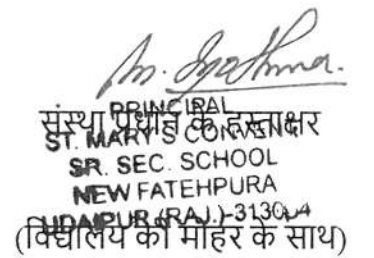 संस्था प्रधान के हस्ताक्षर
PRINCIPAL
ST. MARY'S CONVENT
SR. SEC. SCHOOL
NEW FATEHPURA
UDAIPUR (RAJ.)-3130
(विद्यालय की मोहर के साथ)